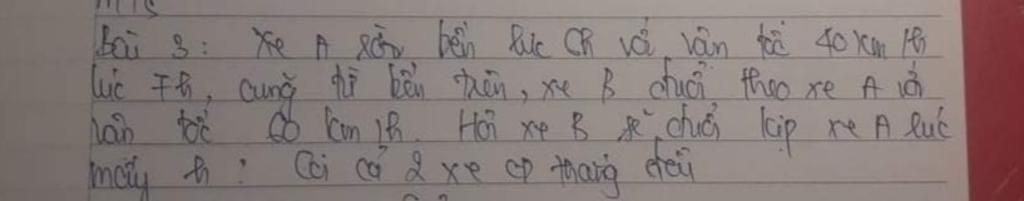 Bài 3: Xe A rời bến lúc 6h với vận tốc 40 km/h
lúc 7h, cũng từ bến trên, xe B đuổi theo xe A với
vận tốc 60 km/h. Hỏi xe B sẽ đuổi kịp xe A lúc
mấy h? Coi cả 2 xe cđ thẳng đều